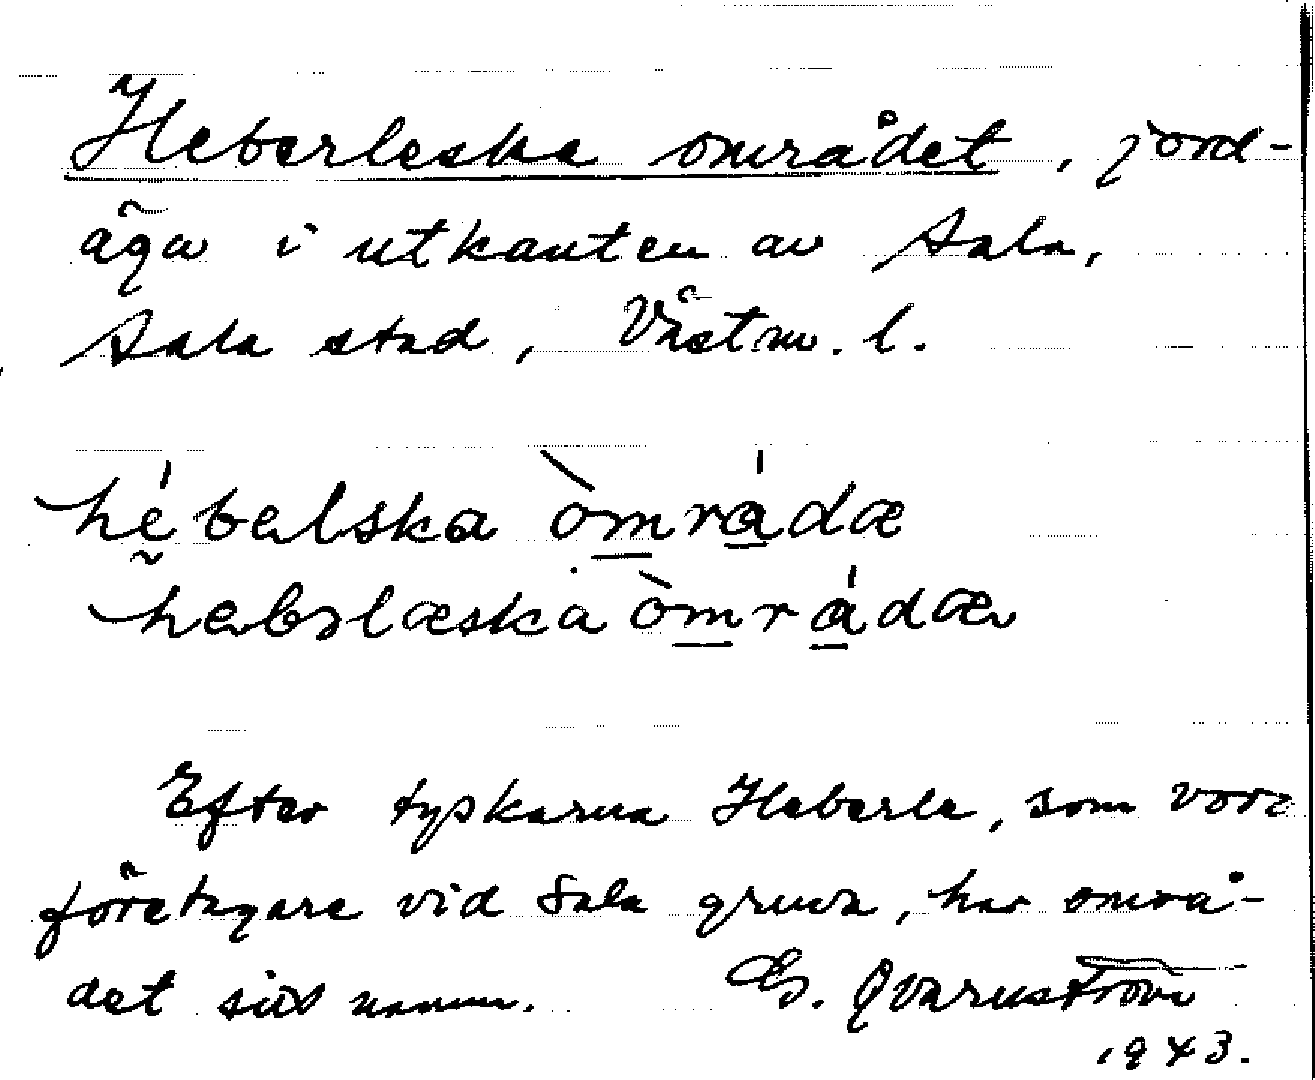 Heberleska området, jord-
äga i utkanten av Sala,
Sala stad, Västm. l.
hébelska òmrádæ
heberlæska òmrádæ
Efter tyskarna Heberle, som voro
företagare vid Sala gruva, har områ-
det sitt namn. G. Qvarnström
1943.